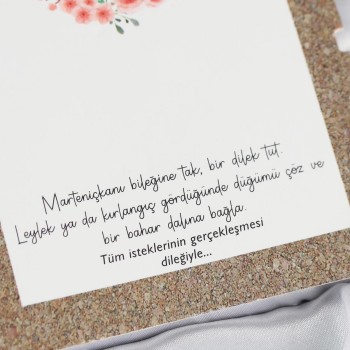 Marteniçkanı bileğine tak, bir dilek tut.
Leylek ya da kırlangıç gördüğünde düğümü çöz ve
bir bahar dalına bağla.
Tüm isteklerinin gerçekleşmesi
dileğiyle...